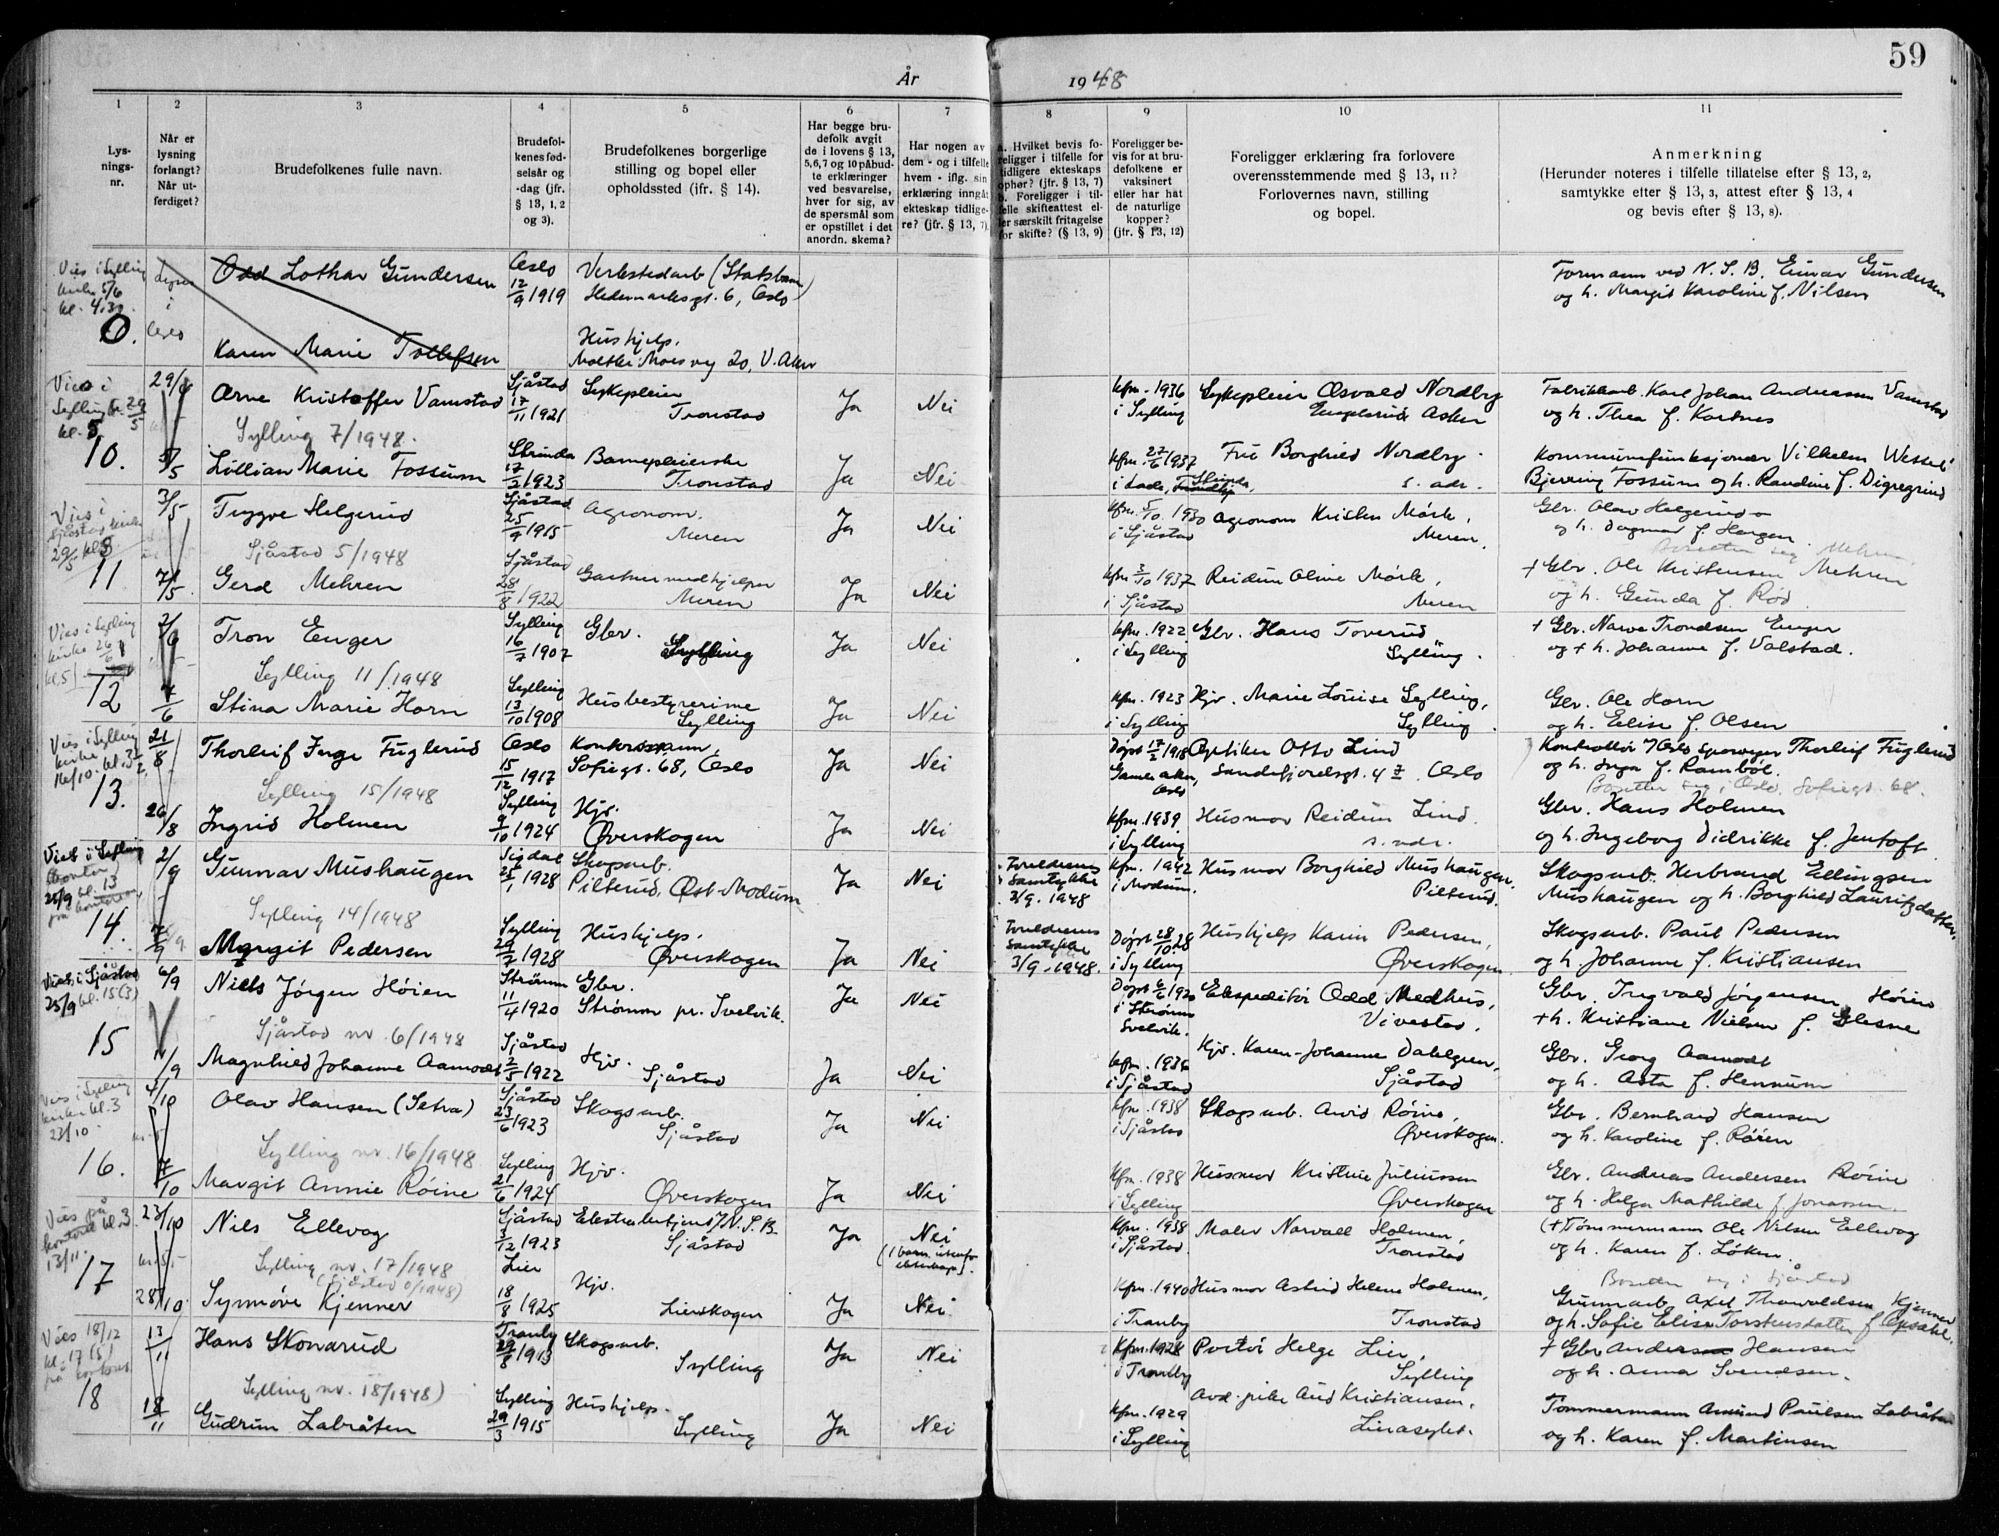 59
År 1948
1
2
3
4
5
6
7
8
9
10
11
Lys-
nings-
nr.
Når er
lysning
forlangt?
Når ut-
ferdiget?
Brudefolkenes fulle navn.
Brudefol-
kenes fød-
selsår og
-dag (jfr.
§ 13, 1, 2
og 3).
Brudefolkenes borgerlige
stilling og bopel eller
opholdssted (jfr. § 14).
Har begge bru-
defolk avgit
de i lovens § 13,
5,6,7 og 10 påbud-
te erklæringer
ved besvarelse,
hver for sig, av
de spørsmål som
er opstillet i det
anordn. skema?
Har nogen av
dem - og i tilfelle
hvem - iflg. sin
erklæring inngåt
ekteskap tidlige-
re? (jfr. § 13, 7).
a. Hvilket bevis fo-
religger i tilfelle for
tidligere ekteskaps
ophør? (jfr. § 13, 7)
b. Foreligger i til-
felle skifteattest el-
ler særskilt fritagelse
for skifte? (§ 13, 9)
Foreligger be-
vis for at bru-
defolkene er
vaksinert
eller har hat
de naturlige
kopper?
(jfr. § 13, 12)
Foreligger erklæring fra forlovere
overensstemmende med § 13, 11?
Forlovernes navn, stilling
og bopel.
Anmerkning
(Herunder noteres i tilfelle tillatelse efter § 13, 2,
samtykke efter § 13, 3, attest efter § 13, 4
og bevis efter § 13, 8).
Vies i Sylling
kirke 5/6
kl. 4,30.
0.
Lyses
i
Oslo
Odd Lothar Gundersen
Oslo
12/9 1919
Verkstedarb (Statsban)
Hedemarksgt. 6, Oslo
Formann ved N.S.B. Einar Gundersen
og h. Margit Karoline f. Nilsen
Karen Marie Tollefsen
Hushjelp.
Moltke Moes vej 20, V. Aker
Vies i
Sylling k. 29/5
kl. 5
10.
Arne Kristoffer Vamstad
Sjåstad
17/11 1921
Sykepleier
Tronstad
Ja
Nei
kfm. 1936
i Sylling
Sykepleier Osvald Nordby
Asker
Fabrikkarb. Karl Johan Andersen Vamstad
og h. Thea f. Kortnes
Sylling 7/1948.
5/5
Lillian Marie Fossum
Strinda
17/2 1923
Barnepleierske
Tronstad
Ja
Nei
kfm. 27/6 1937
i Lade, Strinda
Fru Borghild Nordby
s. adr.
Kommunefunksjonær Vilhelm Wessel
Bjerring Fossum og h. Randine f. Digregrind
Vies i
Sjåstad kirke
29/5 kl. 3
11
3/5
Trygve Helgerud
Sjåstad
25/9 1915
Agronom.
Meren
Ja
Nei
kfm. 5/10 1930
i Sjåstad
Agronom Kristen Mörk,
Meren.
Gbr. Olav Helgerud
og h. Dagmar f. Horgen
Sjåstad 5/1948
Bosetter seg Mehren
7/5
Gerd Mehren
Sjåstad
28/8 1922
Gartnermedhjelper
Meren
Ja
Nei
kfm 3/10 1937
i Sjåstad
Reidun Oline Mörk,
Meren
+ Gbr. Ole Kristensen Mehren
og h. Gunda f. Rød.
Vies i Sylling
kirke 26/6
kl. 5
12
2/6
Tron Enger
Sylling
16/7 1907
Gbr.
Sylling
Ja
Nei
kfm. 1922
i Sylling
Gbr. Hans Toverud,
Sylling.
+ Gbr. Narve Trondsen Enger
og + h. Johanne f. Valstad.
Sylling 11/1948
7/6
Stina Marie Horn
Sylling
13/10 1908
Husbestyrerinne
Sylling
Ja
Nei
kfm. 1923
i Sylling
Hjv. Marie Louise Sylling,
Sylling.
Gbr. Ole Horn
og h. Elise f. Olsen
Vies i Sylling
kirke
16/10. kl. 3½
13.
21/8
Thorleif Inge Fuglerud
Oslo
15/12 1917
Kontormann,
Sofiegt. 68, Oslo
Ja
Nei
Døpt 17/2 1918
Gamle Aker,
Oslo
Optiker Otto Lind
Sandefjordsgt. 4 . Oslo
Kontrollør i Oslo Sporveger Thorleif Fuglerud
og h. Inga f. Rambøl.
Sylling 15/1948
Bosetter seg i Oslo, Sofiegt. 68.
26/8
Ingrid Holmen
Sylling
9/10 1924
Hjv.
Øverskogen
Ja
Nei
kfm. 1939
i Sylling
Husmor Reidun Lind.
s. adr.
Gbr. Hans Holmen
og h. Ingeborg Didrikke f. Jentoft
Viet i Sylling
kontor
25/9 kl. 13
på kontoret
14.
2/9
Gunnar Mushaugen
Sigdal
25/1 1928
Skogsarb.
Pilterud, Øst-Modum
Ja
Nei
Foreldrenes
samtykke
3/9. 1948
kfm. 1942
i Modum.
Husmor Borghild Mushaugen.
Pilterud.
Skogsarb. Herbrand Ellingsen
Mushaugen og h. Borghild Lauritzdatter.
Sylling 14/1948
7/9
Margit Pedersen
Sylling
29/7 1928
Hushjelp.
Øverskogen
Ja
Nei
Foreldrenes
samtykke
3/9. 1948.
Døpt 28/10 28
i Sylling
Hushjelp Karin Pedersen,
Øverskogen
Skogsarb. Paul Pedersen
og h. Johanne f. Kristiansen
Vies i Sjåstad
25/9 kl. 15 (3)
15
6/9
Niels Jörgen Høien
Strømm
11/4 1920
Gbr.
Strømm pr. Svelvik.
Ja
Nei
Døpt 6/6 1920
i Strømm
Svelvik.
Ekspeditør Odd Medhus,
Vivestad.
Gbr. Ingvald Jørgensen Høien
+ h. Kristiane Nielsen f. Glesne
Sjåstad nr. 6/1948
11/9
Magnhild Johanne Aamodt
Sjåstad
2/5 1922
Hjv.
Sjåstad
Ja
Nei
kfm. 1936
i Sjåstad
Hjv. Karen-Johanne Dahlgren,
Sjåstad
Gbr. Georg Aamodt
og h. Asta f. Hennum
Vies i Sylling
kirke kl. 3
23/10.
16.
4/10
Olav Hansen (Setra)
Sjåstad
23/6 1923
Skogsarb.
Sjåstad
Ja
Nei
kfm. 1938
i Sjåstad
Skogsarb. Arvid Röine,
Øverskogen.
Gbr. Bernhard Hansen
og h. Karoline f. Rören
Sylling nr. 16/1948
7/10
Margit Annie Röine
Sylling
21/6 1924
Hjv.
Øverskogen
Ja
Nei
kfm. 1938
i Sylling
Husmor Kristine Juliussen
Øverskogen
Gbr. Andreas Andersen Röine
og h. Helga Mathilde f. Jonassen.
Vies på
kontoret kl. 3.
13/11.
17
23/10
Nils Ellevog
Sjåstad
3/12 1923
Ekstrabetjent i N.S.B.
Sjåstad
Ja
Nei
(1 barn utenfor
ekteskap).
kfm. 1938
i Sjåstad.
Maler Narvall Holmen,
Tronstad
(+ Tømmermann Ole Nilsen Ellevog
og h. Karen f. Løken.
Sylling nr. 17/1948
(Sjåstad 0/1948)
Bosetter seg i Sjåstad
28/10
Synnöve Kjenner
Lier
18/8 1925
Hjv.
Lierskogen
Ja
Nei
kfm. 1940
i Tranby
Husmor Astrid Helene Holmen,
Tronstad
Grunnarb. Axel Thorvaldsen Kjenner
og h. Sofie Elise Torstensdatter f. Opsahl.
Vies 18/12
kl. 17 (5)
på kontoret
18
13/11
Hans Skonarud
Tranby
29/8 1913
Skogsarb.
Sylling
Ja
Nei
Kfm. 1928
i Tranby
Portör Helge Lier,
Sylling
+ Gbr Anders Hansen
og h. Anna Svendsen.
Sylling nr. 18/1948)
18/11
Gudrun Labråten
Sylling
29/3 1915
Hushjelp.
Sylling
Ja
Nei
kfm. 1929
i Sylling
Avd. pike Aud Kristiansen,
Lierasylet.
Tømmermann Amund Paulsen Labråten
og h. Karen f. Martinsen